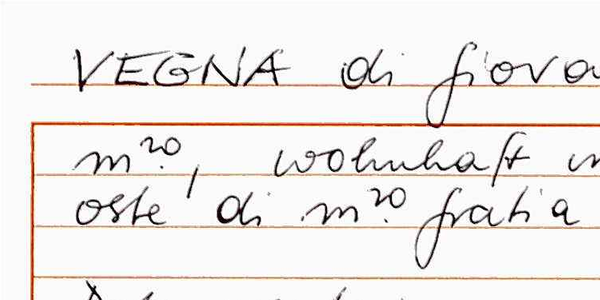 VEGNA di giova
m.ro, wohnhaft in
oste di m.ro gratia